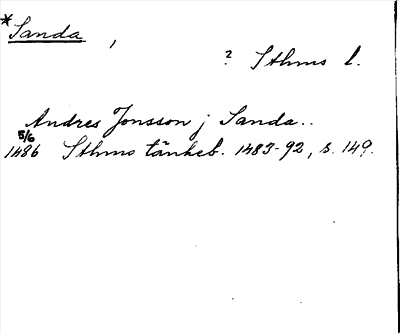 *Sanda ,
? Sthms l.
Andres Jonsson j Sanda..
5/6
1486 Sthms tänkeb. 1483-92, s. 149.